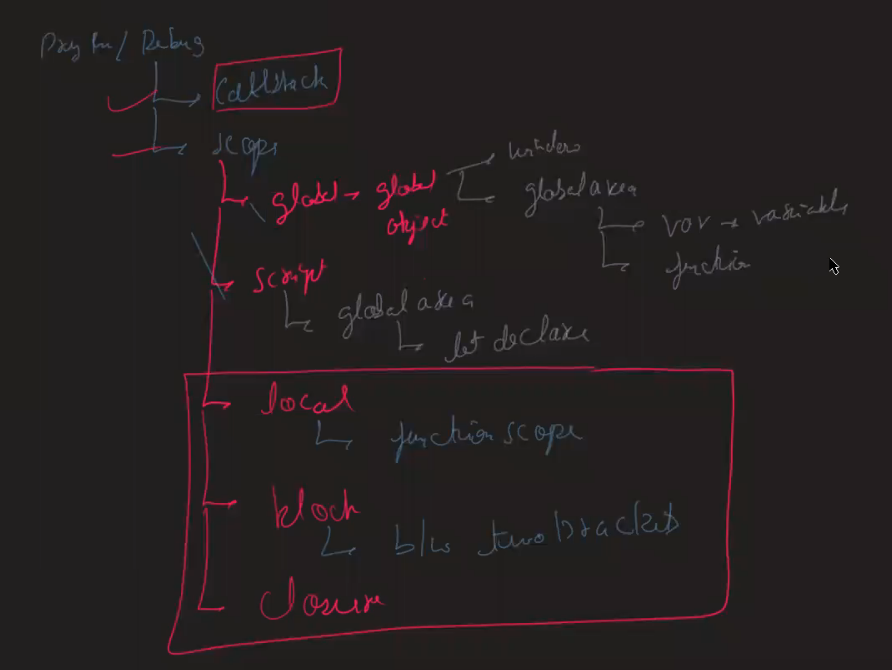 / Debug
Callstack
scope
window
global → global
object
global area
var → variable
function
script
global area
let declare
local
function scope
block
b/w two brackets
closure